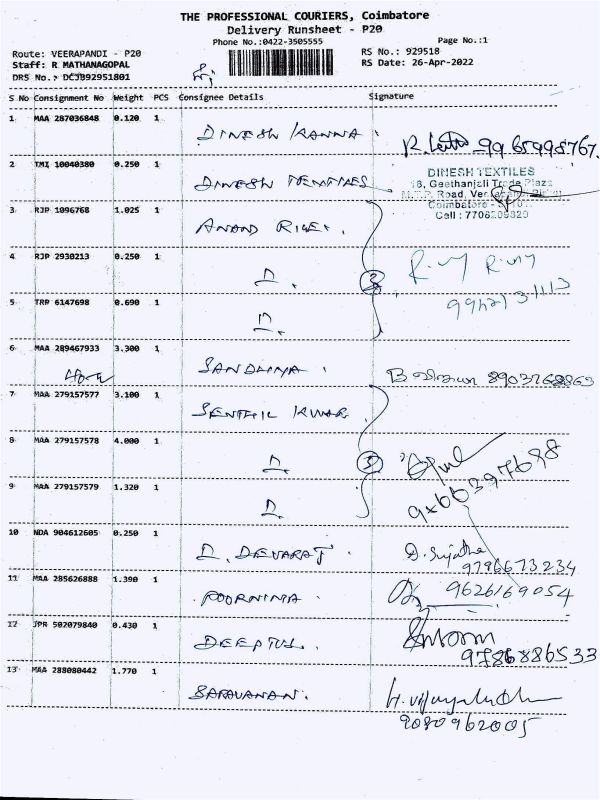 THE PROFESSIONAL COURIERS, Coimbatore
Delivery Runsheet - P20
Phone No.:0422-3505555 Page No.:1
Route: VEERAPANDI - P20 RS No.: 929518
Staff: R MATHANAGOPAL RS Date: 26-Apr-2022
DRS No.: DCJB92951801
S No Consignment No Weight PCS Consignee Details Signature
1 MAA 287036848 0.120 1 DINESH KANNA
2 TMI 10040380 0.250 1 DINESH TEXTILES
DINESH TEXTILES
18, Geethanjali Trade Plaza
Road,
Coimbatore
Cell : 7708209320
3 RJP 1096768 1.025 1 ANAND
4 RJP 2930213 0.250 1
5 TRP 6147698 0.690 1
6 MAA 289467933 3.300 1 SANDHIYA. 8903768863
7 MAA 279157577 3.100 1 SENTHIL KUMAR
8 MAA 279157578 4.000 1
9 MAA 279157579 1.320 1
10 NDA 904612605 0.250 1 D. DEVARAJ. D. Sujatha
9796673234
11 MAA 285626888 1.390 1 POORNIMA. 9626169054
12 JPR 502079840 0.430 1
9786886533
13 MAA 288080442 1.770 1 SARAVANAN.
9080962005